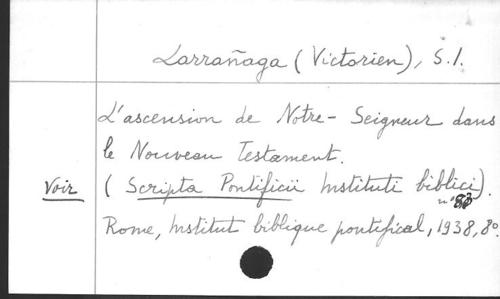 Larrañaga (Victorien), S.I.
L'ascension de Notre-Seigneur dans
le Nouveau Testament.
Voir (Scripta Pontificii Instituti biblici).
Rome, Institut biblique pontifical, 1938, 8º.